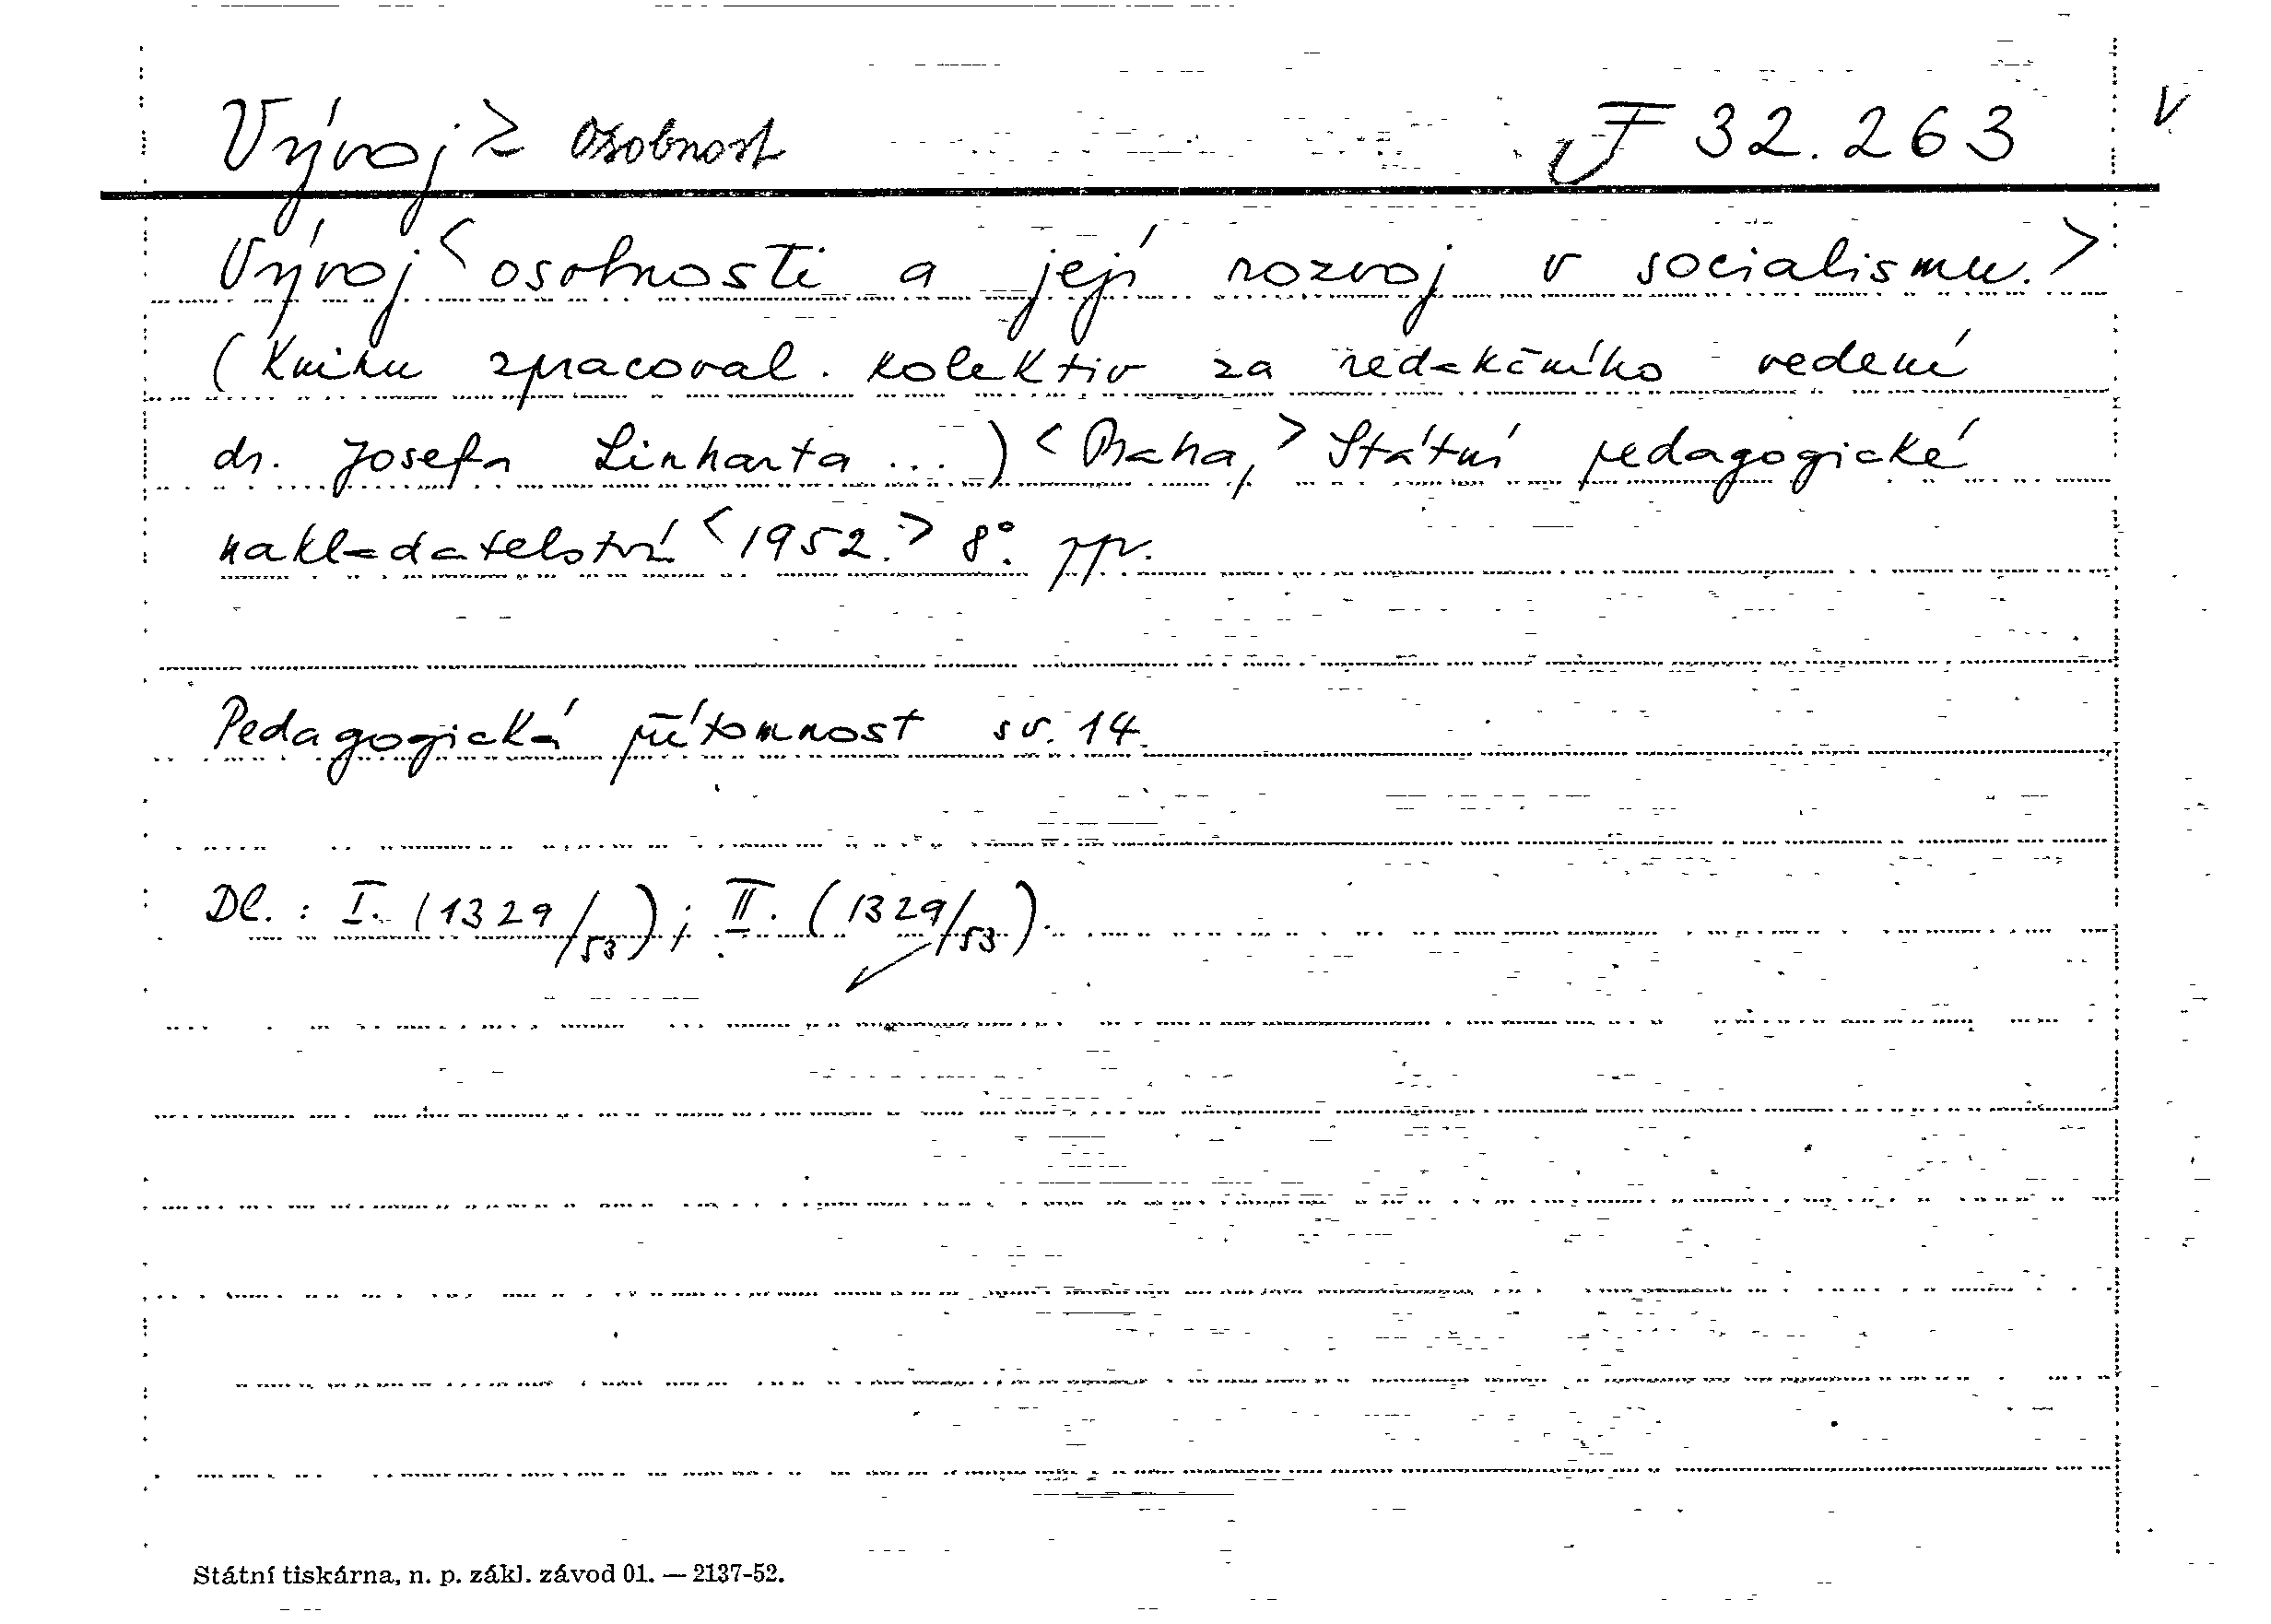 Vývoj > osobnost F 32.263 V
Vývoj < osobnosti a její rozvoj v socialismu. >
(Knihu zpracoval kolektiv za redakčního vedení
dr. Josefa Linharta ...) < Praha, > Státní pedagogické
nakladatelství < 1952. > 8°. ppv.
Pedagogická přítomnost sv. 14.
Dl. : I. (1329/53) ; II. (1329/53).
Státní tiskárna, n. p. zákl. závod 01. — 2137-52.